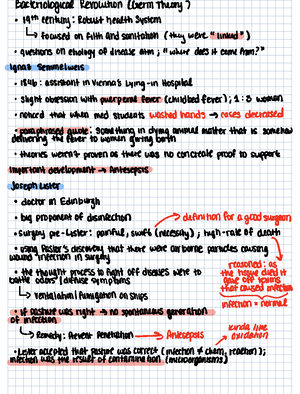 Bacteriological Revolution (Germ Theory)
• 19th century: Robust health system
↳ focused on filth and sanitation (they were "linked")
• questions on etiology of disease atm; "where does it come from?"
Ignaz Semmelweis
• 1846: assistant in Vienna's Lying-in Hospital
• slight obsession with puerperal fever (childbed fever); 1:3 women
• noticed that when med students washed hands → cases decreased
• paraphrased quote: something in dying animal matter that is somehow
delivering the fever to women giving birth
• theories weren't proven as there was no concrete proof to support
Important development → Antisepsis
Joseph Lister
• doctor in Edinburgh
• big proponent of disinfection
→ definition for a good surgeon
• surgery pre-Lister: painful, swift (necessity); high-rate of death
• using Pastor's discovery that there were airborne particles causing
wound infection in surgery
reasoned: as
the tissue died it
gave off toxins
that caused infection
infection = normal
• the thought process to fight off diseases were to
battle odors/defuse symptoms
↳ ventilation/fumigation on ships
• if pasture was right → no spontaneous generation
of infection
↳ Remedy: Prevent Penetration → Antisepsis
kinda like
oxidation
• Lister accepted that Pasture was correct (infection ≠ chem. reaction);
infection was the result of contamination (microorganisms)